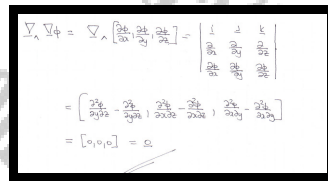 ∇ ∧ ∇φ = ∇ ∧ [∂φ/∂x, ∂φ/∂y, ∂φ/∂z] = | i j k ; ∂/∂x ∂/∂y ∂/∂z ; ∂φ/∂x ∂φ/∂y ∂φ/∂z |
= [∂²φ/∂y∂z - ∂²φ/∂y∂z, ∂²φ/∂x∂z - ∂²φ/∂x∂z, ∂²φ/∂x∂y - ∂²φ/∂x∂y]
= [0,0,0] = 0